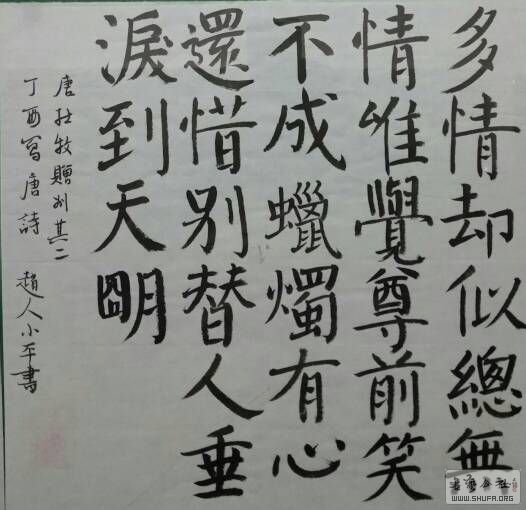 多情却似總無
情唯覺尊前笑
不成蠟燭有心
還惜别替人垂
淚到天明
唐杜牧贈别其二
丁酉寫唐詩 趙人小平書
書法公社
WWW.SHUFA.ORG